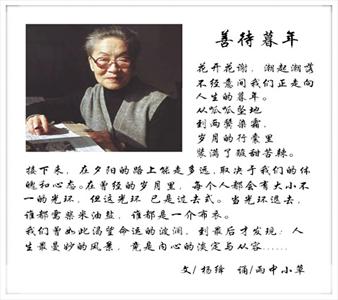 善待暮年
花开花谢，潮起潮落
不经意间我们正走向
人生的暮年。
从呱呱坠地
到两鬓染霜，
岁月的行囊里
装满了酸甜苦辣。
接下来，在夕阳的路上能走多远，取决于我们的体
魄和心态。在曾经的岁月里，每个人都会有大小不
一的光环，但这光环 已是过去式。当光环退去，
谁都需柴米油盐，谁都是一介布衣。
我们曾如此渴望命运的波澜，到最后才发现：人
生最曼妙的风景，竟是内心的淡定与从容……
文/ 杨绛　诵/雨中小草